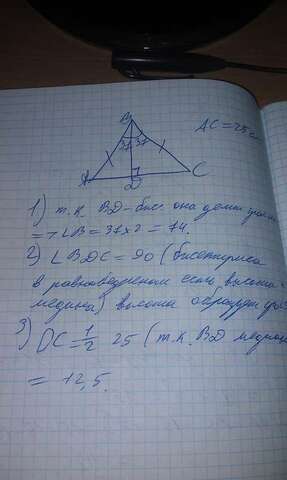 B
AC=25с
37 37
A
D
C
1) т.к. BD-бис. она делит
=> ∠B=37×2=74.
2) ∠BDC=90 (биссектриса
в равнобедренном есть высота
медиана) высота образует
3) DC=1/2 25 (т.к. BD медиана
= 12,5.